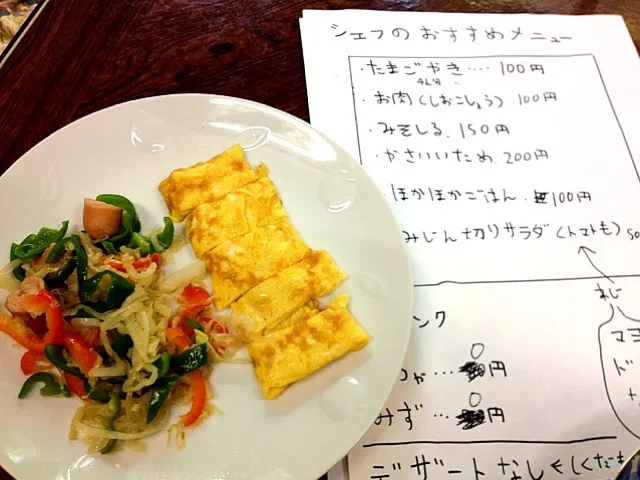 シェフのおすすめメニュー
・たまごやき‥‥100円
・お肉(しおこしょう) 100円
・みそしる.150円
・かさいいため.200円
ほかほかごはん.100円
みじん切りサラダ(トマトも)50
ンク
…0円
みず…0円
マヨ
ド
デザートなしもしくだも